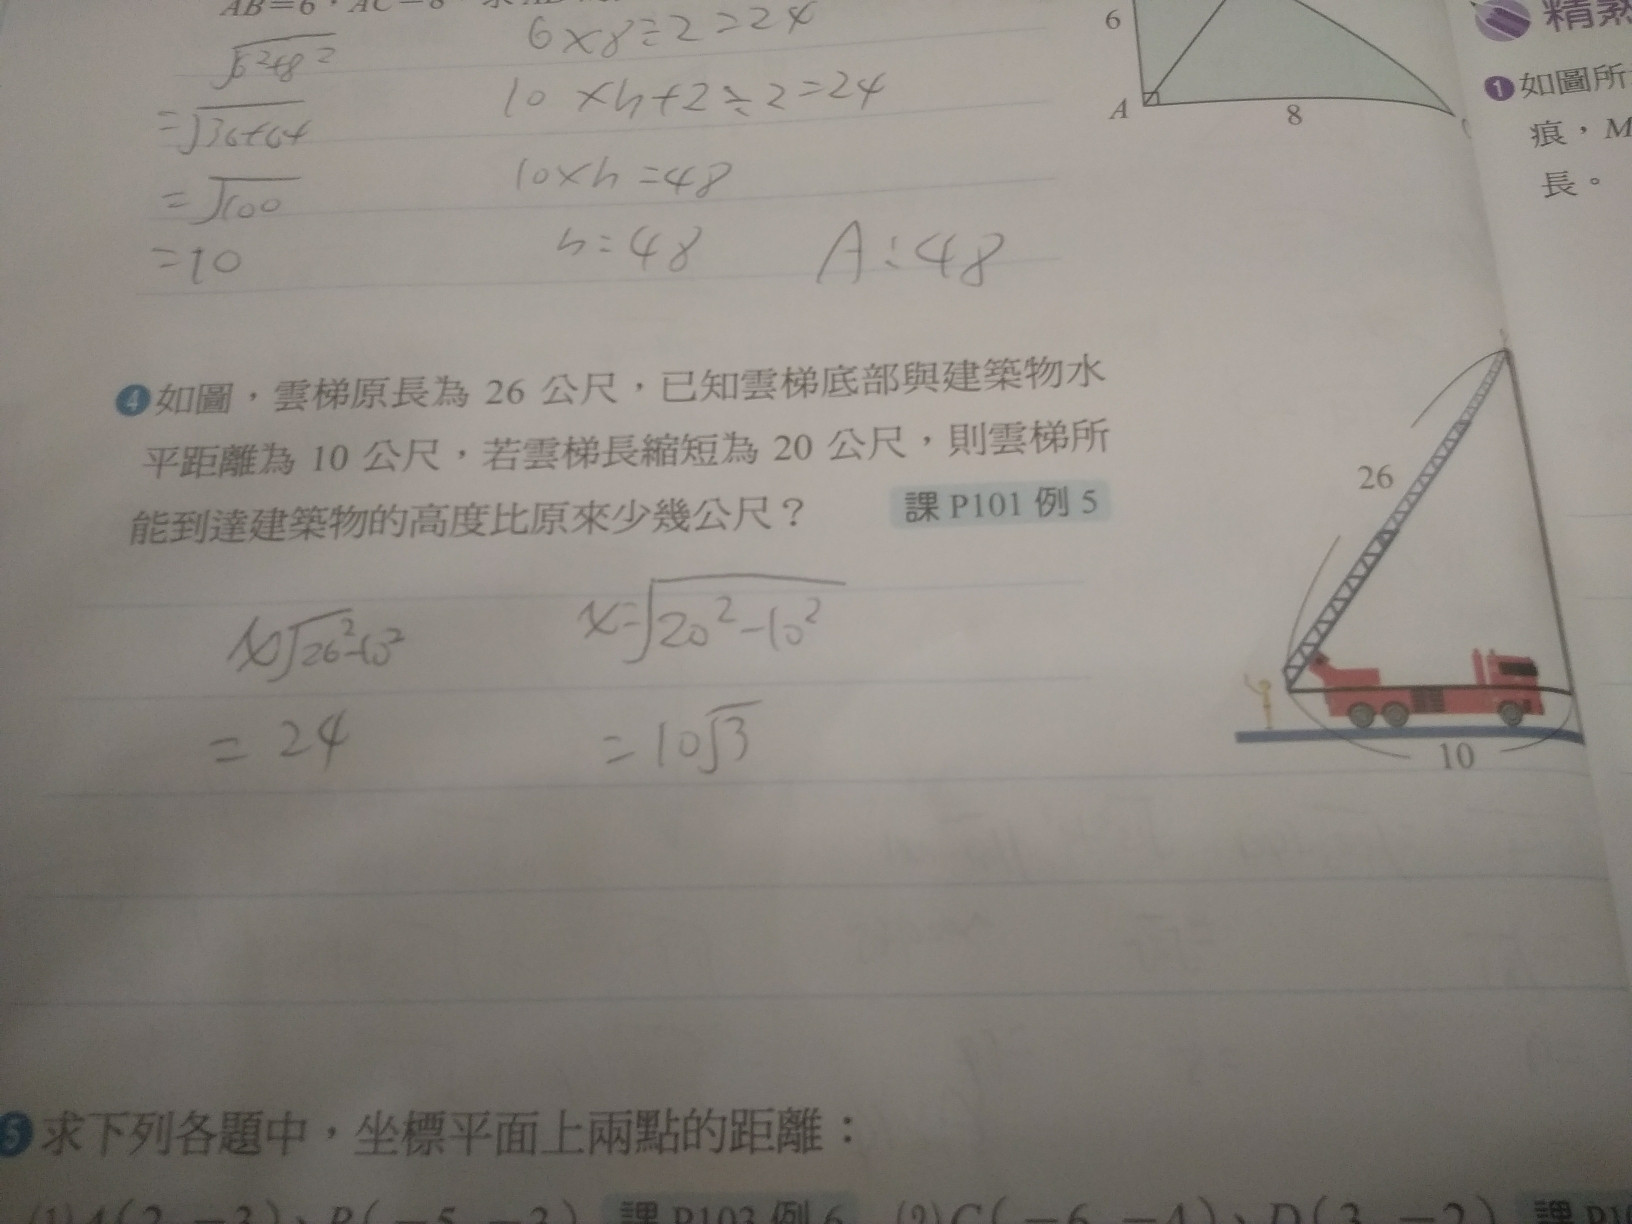 AB=6，AC=8
√6²+8²
=√36+64
=√100
=10
6×8÷2=24
10×h+2÷2=24
10×h=48
h=48
A:48
6
A
8
精熟
1 如圖所
痕，M
長。
4 如圖，雲梯原長為 26 公尺，已知雲梯底部與建築物水
平距離為 10 公尺，若雲梯長縮短為 20 公尺，則雲梯所
能到達建築物的高度比原來少幾公尺？ 課 P101 例 5
x√26²-10²
=24
x=√20²-10²
=10√3
26
10
5 求下列各題中，坐標平面上兩點的距離：
(1)A(2，-3)、B(-5，-3) 課 P103 例 6 (2)C(-6，-4)、D(3，-2) 課 P10